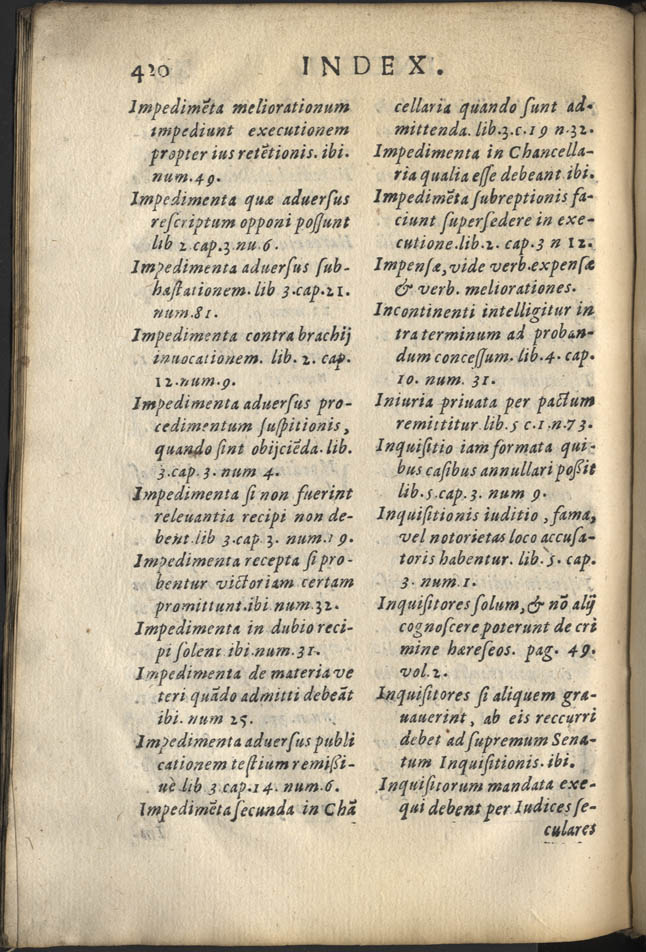 420 INDEX.
Impedimẽta meliorationum
impediunt executionem
propter ius retẽtionis. ibi.
num.49.
Impedimenta quæ aduersus
rescriptum opponi possunt
lib 2 cap.3 nu 6.
Impedimenta aduersus sub-
hastationem. lib 3.cap.21.
num.81.
Impedimenta contra brachij
inuocationem. lib. 2. cap.
12.num.9.
Impedimenta aduersus pro-
cedimentum suspitionis,
quando sint obijciẽda. lib.
3.cap. 3. num 4.
Impedimenta si non fuerint
releuantia recipi non de-
bent lib 3 cap. 3. num.19.
Impedimenta recepta si pro-
bentur victoriam certam
promittunt.ibi num.32.
Impedimenta in dubio reci-
pi solent ibi.num.31.
Impedimenta de materia ve
teri quãdo admitti debeãt
ibi. num 25.
Impedimenta aduersus publi
cationem testium remißi-
uè lib 3 cap.14. num.6.
Impedimẽta secunda in Chã
cellaria quando sunt ad-
mittenda. lib.3.c.19 n.32.
Impedimenta in Chancella-
ria qualia esse debeant ibi.
Impedimẽta subreptionis fa-
ciunt supersedere in exe-
cutione.lib.2. cap.3 n 12.
Impensæ, vide verb.expensæ
& verb. meliorationes.
Incontinenti intelligitur in
tra terminum ad proban-
dum concessum. lib.4. cap.
10. num. 31.
Iniuria priuata per pactum
remittitur lib.5 c.1.n.73.
Inquisitio iam formata qui-
bus casibus annullari poßit
lib.5.cap.3. num 9.
Inquisitionis iuditio, fama,
vel notorietas loco accusa-
toris habentur. lib. 5. cap.
3. num 1.
Inquisitores solum, & nõ alij
cognoscere poterunt de cri
mine hæreseos. pag. 49.
vol.2.
Inquisitores si aliquem gra-
uauerint, ab eis reccurri
debet ad supremum Sena-
tum Inquisitionis. ibi.
Inquisitorum mandata exe-
qui debent per Iudices se-
culares